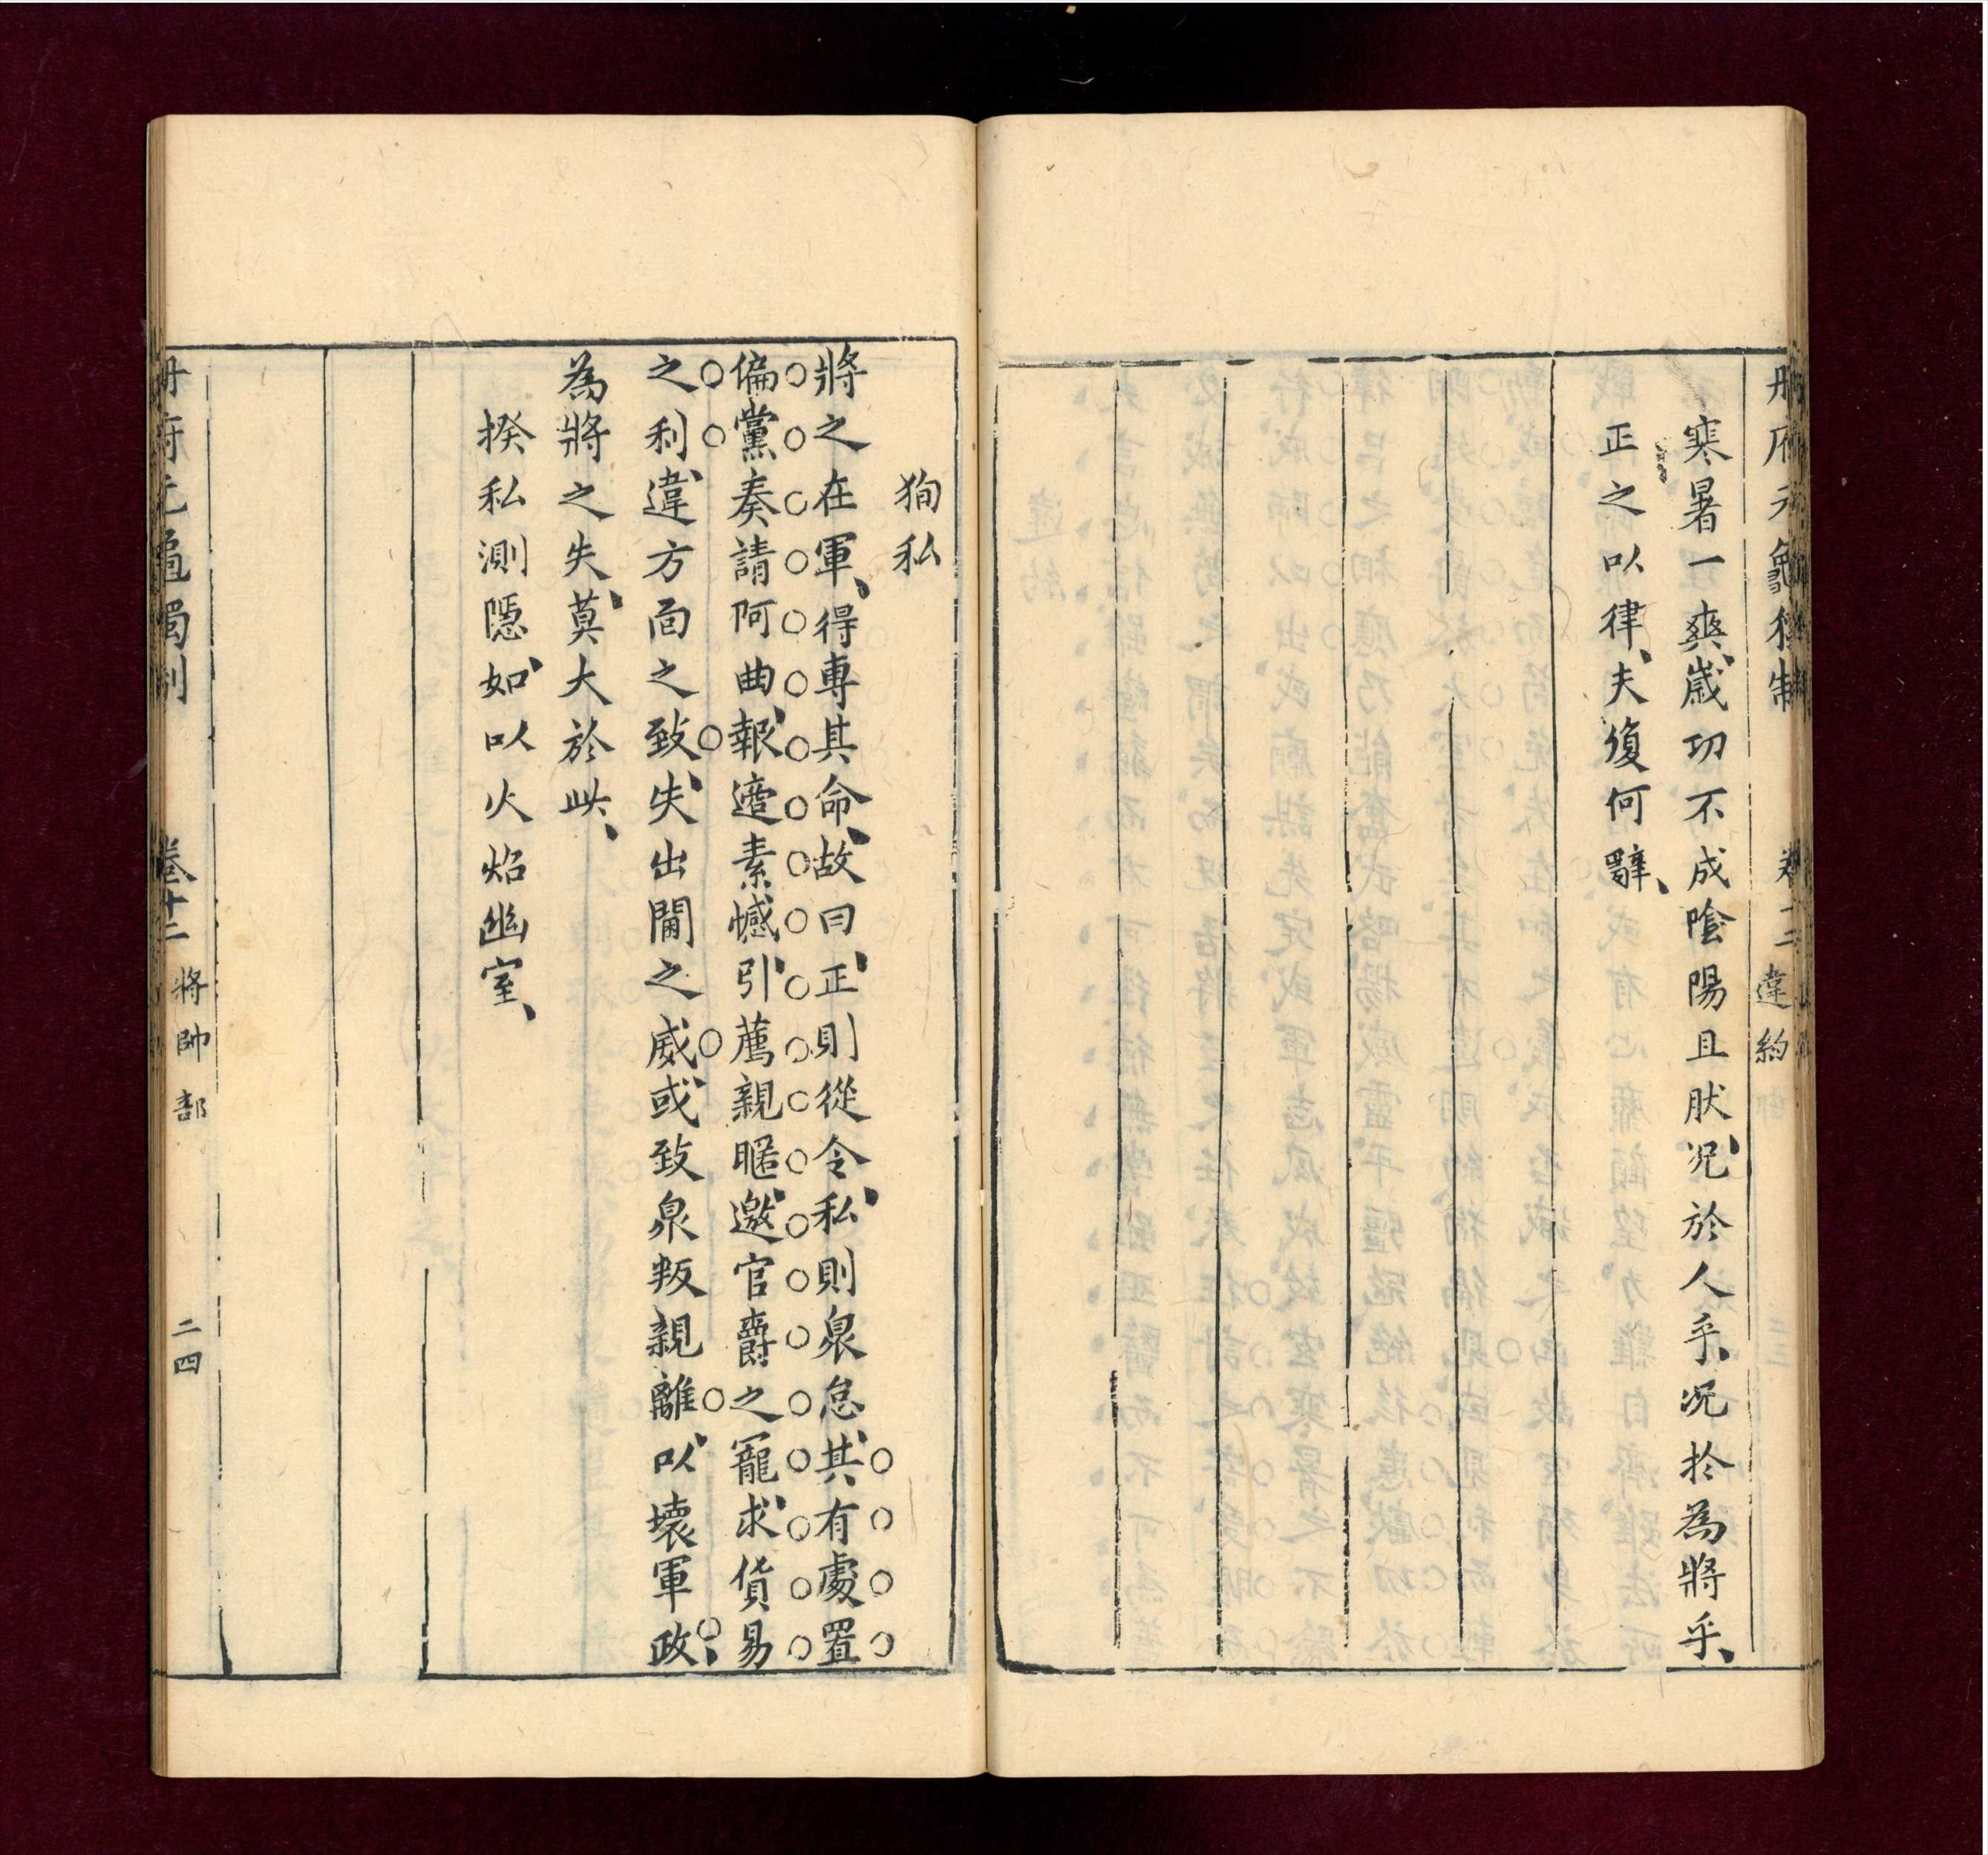 册府元龜獨制 卷十二 違約
寒暑一爽、歲功不成陰陽且肰、况於人乎、况扵為將乎、
正之以律、夫復何辭、
狥私
將之在軍、得專其命、故曰、正則從令、私則衆怠、其有處置
偏黨奏請阿曲、報遵素憾、引薦親暱、邀官爵之寵、求貨易
之利、違方面之致、失出閫之威、或致衆叛親離、以壞軍政、
為將之失、莫大於此、
揆私測隱、如以火焰幽室、
册府元龜獨制 卷十二 將帥部 二四